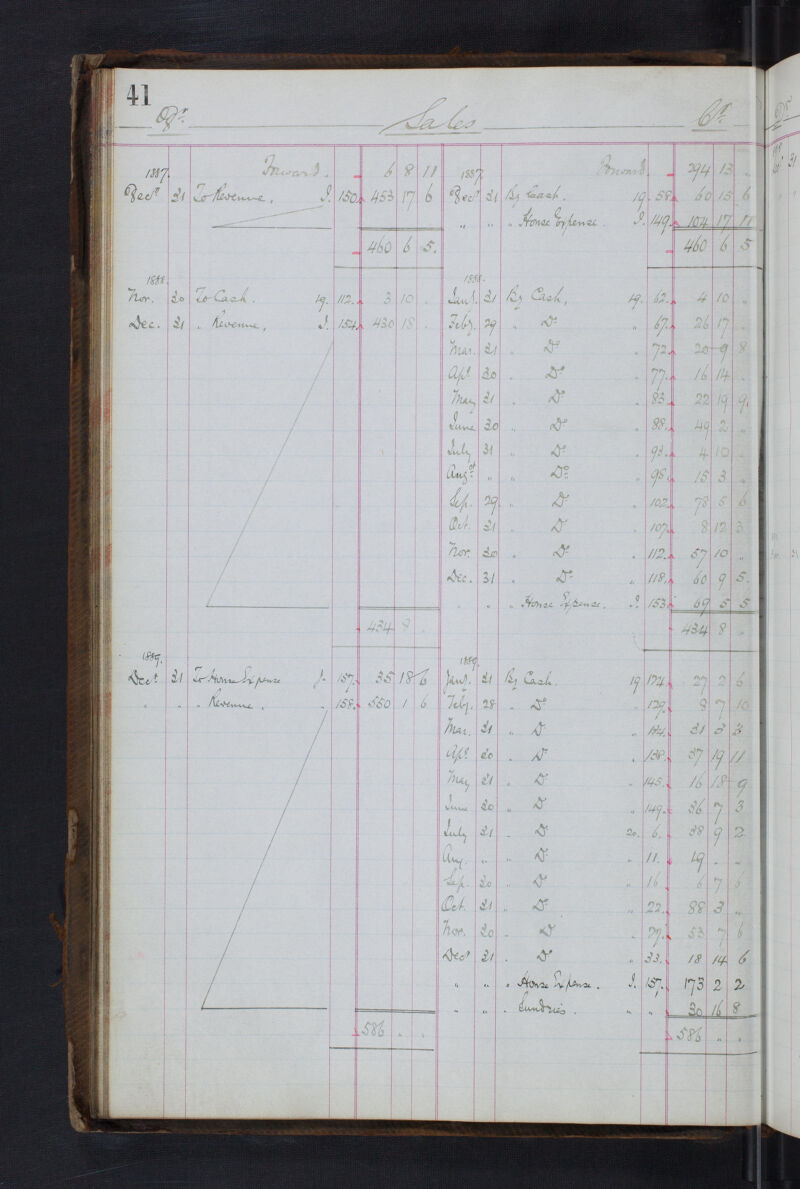 41
Dr. Sales Cr.
1887. Forward. 6 8 11 1887. Forward. 294 13 "
Decr. 31 To Revenue. J. 150 453 17 6 Decr. 31 By Cash. 19. 58 60 15 6
" " " House Expense. J. 149 104 17 11
460 6 5. 460 6 5
1888. 1888.
Nov. 30 To Cash. 19. 112. 3 10 . Jany. 31 By Cash, 19. 62. 4 10 .
Dec. 31 " Revenue, J. 154. 430 18 . Feby. 29 " Do " 67. 26 17 .
Mar. 31 " Do . 72. 20 9 8
Apl. 30 . Do . 77. 16 14 .
May 31 " Do . 83. 22 19 9.
June 30 " Do . 88. 49 2 "
July 31 " Do . 93. 4 10 .
Augst. " " Do . 98. 15 3 .
Sep. 29. " Do . 102. 78 5 6
Oct. 31 " Do . 107. 8 12 3
Nov. 30 . Do . 112. 57 10 "
Dec. 31 " Do " 118. 60 9 5.
" " " House Expense. J. 153. 69 5 5
434 8 . 434 8 "
1889. 1889.
Decr. 31 To House Expense J. 157. 35 18 6 Jany. 31 By Cash. 19 124. 27 2 6
" . " Revenue. . 158. 550 1 6 Feby. 28 " Do " 129. 8 7 10
Mar. 31 " Do . 134. 31 3 3
Apl. 30 . Do . 138. 37 19 11
May 31 " Do . 145. 16 18 9
June 30 " Do . 149. 36 7 3
July 31 . Do 20. 6. 38 9 2
Aug. " " Do " 11. 19 . .
Sep. 30 " Do " 16 6 7 6
Oct. 31 " Do " 22. 88 3 "
Nov. 30 . Do . 27. 53 7 6
Decr 31 . Do " 33. 18 14 6
" " " House Expense. J. 157. 173 2 2
" " . Sundries. " " 30 16 8
586 . . 586 " "
Dr
31